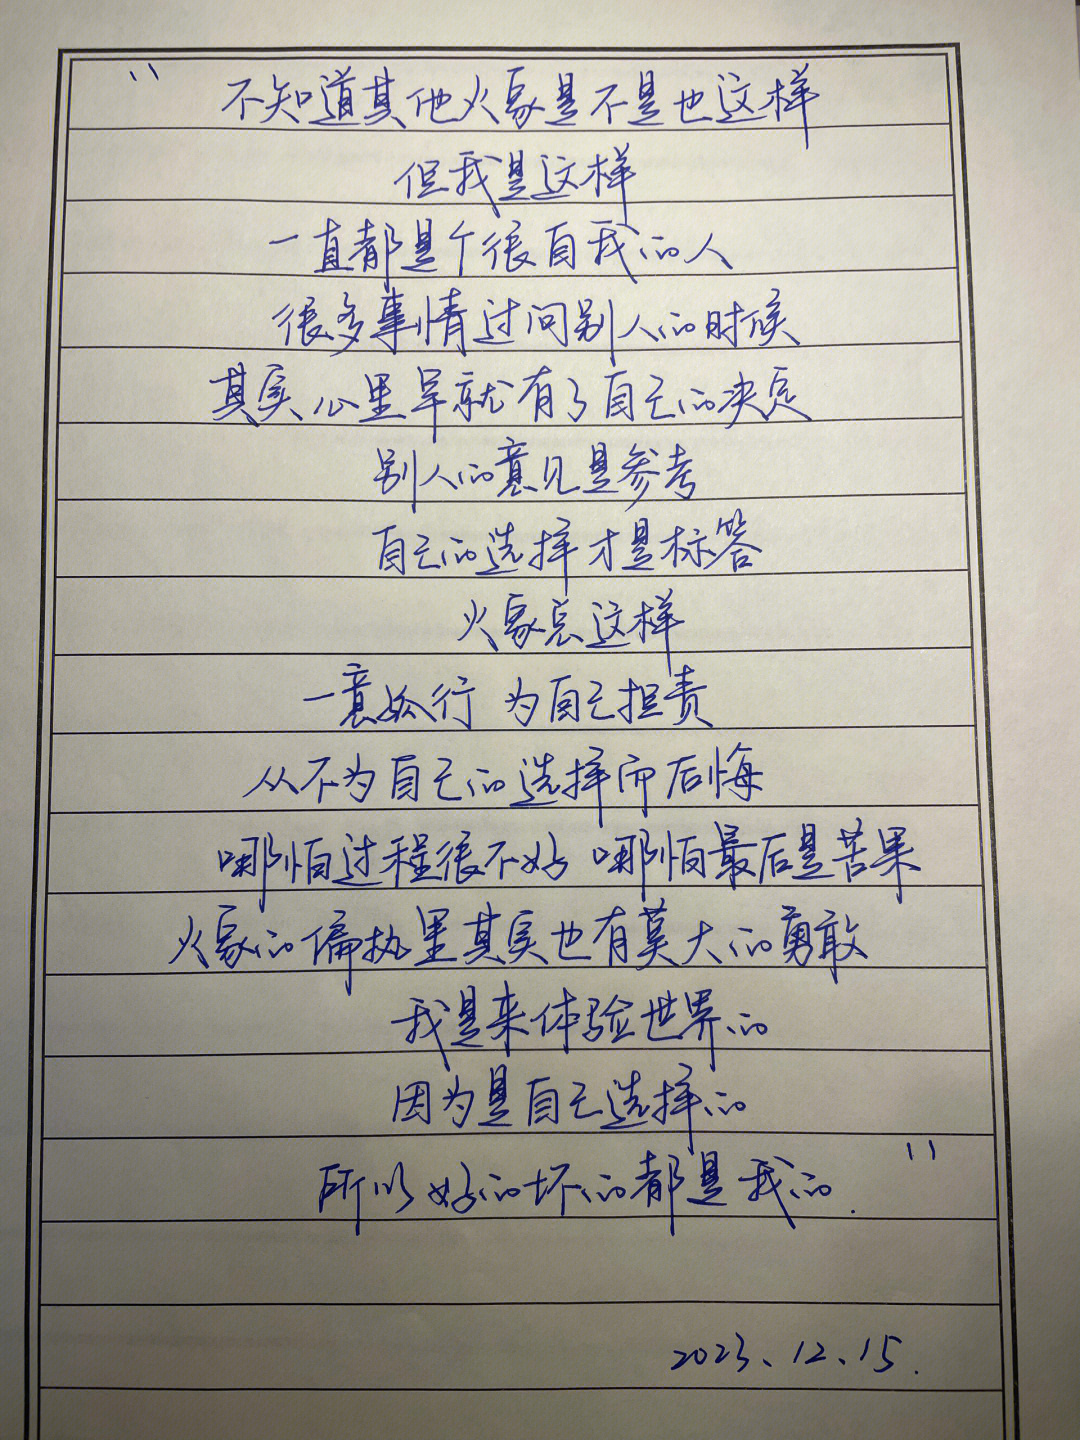 “不知道其他火象是不是也这样
但我是这样
一直都是个很自我的人
很多事情过问别人的时候
其实心里早就有了自己的决定
别人的意见是参考
自己的选择才是标答
火象总这样
一意孤行 为自己担责
从不为自己的选择而后悔
哪怕过程很不好 哪怕最后是苦果
火象的偏执里其实也有莫大的勇敢
我是来体验世界的
因为是自己选择的
所以好的坏的都是我的.”
2023、12、15.